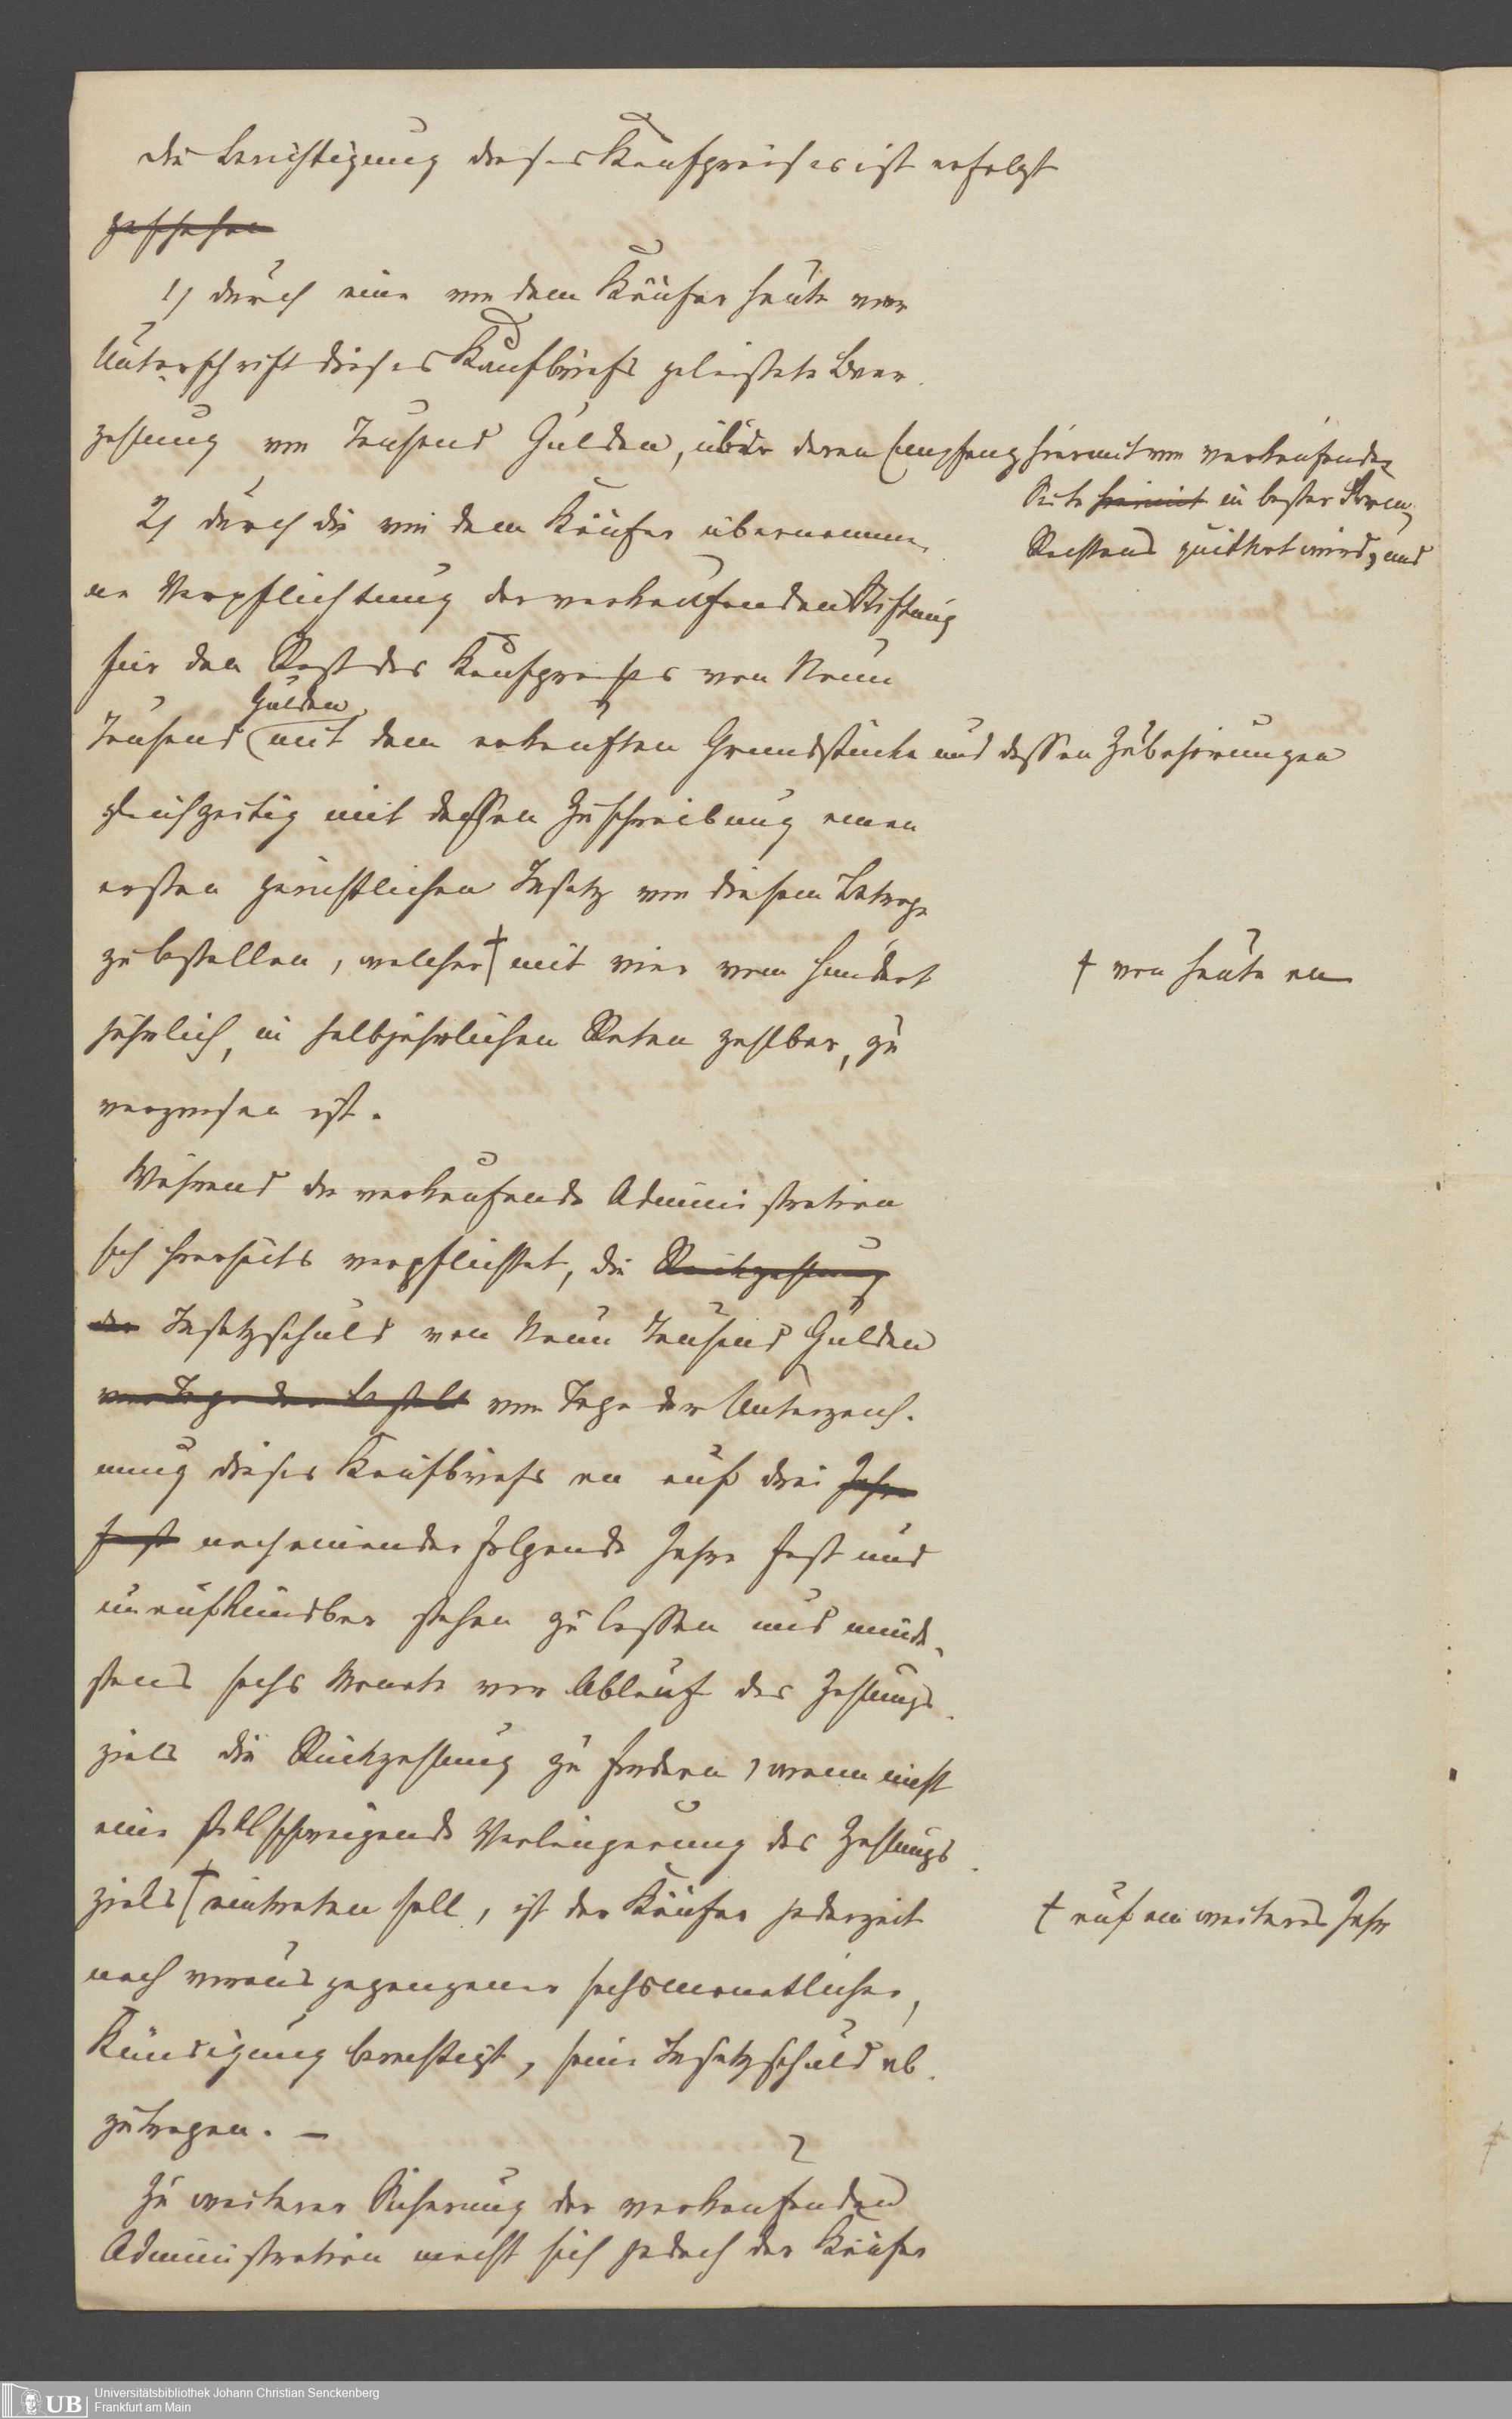 die Berichtigung dieses Kaufpreises ist erfolgt
geschehen
1) durch eine von dem Käufer heute vor
Unterschrift dieses Kaufbriefs geleistete Baar-
zahlung von Tausend Gulden, über deren Empfang hiermit von verkaufender
Seite hiermit in bester Form
Rechtens quittirt wird, und
2) durch die von dem Käufer übernomme-
ne Verpflichtung der verkaufenden Stiftung
für den Rest des Kaufpreises von Neun
Gulden
Tausend mit dem erkauften Grundstücke und dessen Zubehörungen
gleichzeitig mit dessen Zuschreibung einen
ersten gerichtlichen Insatz von diesem Betrage
zu bestellen, welcher † mit vier vom Hundert
† von heute an
jährlich, in halbjährlichen Raten zahlbar, zu
verzinsen ist.
Während die verkaufende Administration
sich ihrerseits verpflichtet, die Rückzahlung
der Insatzschuld von Neun Tausend Gulden
vom Tage der Bestell vom Tage der Unterzeich-
nung dieses Kaufbriefs an auf drei Jahre
fest nacheinander folgende Jahre fest und
unaufkündbar stehen zu lassen und minde-
stens sechs Monate vor Ablauf des Zahlungs-
ziels die Rückzahlung zu fordern, wenn nicht
eine stillschweigende Verlängerung des Zahlungs-
ziels † eintreten soll, ist der Käufer jederzeit
† auf ein weiteres Jahr
nach vorausgegangener sechsmonatlicher,
Kündigung berechtigt, seine Insatzschuld ab-
zutragen. —
Zu weiterer Sicherung der verkaufenden
Administration macht sich jedoch der Käufer
UB
Universitätsbibliothek Johann Christian Senckenberg
Frankfurt am Main